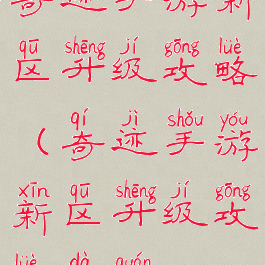 奇迹手游新
qū shēng jí gōng lüè
区升级攻略
qí jì shǒu yóu
（奇迹手游
xīn qū shēng jí gōng
新区升级攻
lüè dà quán